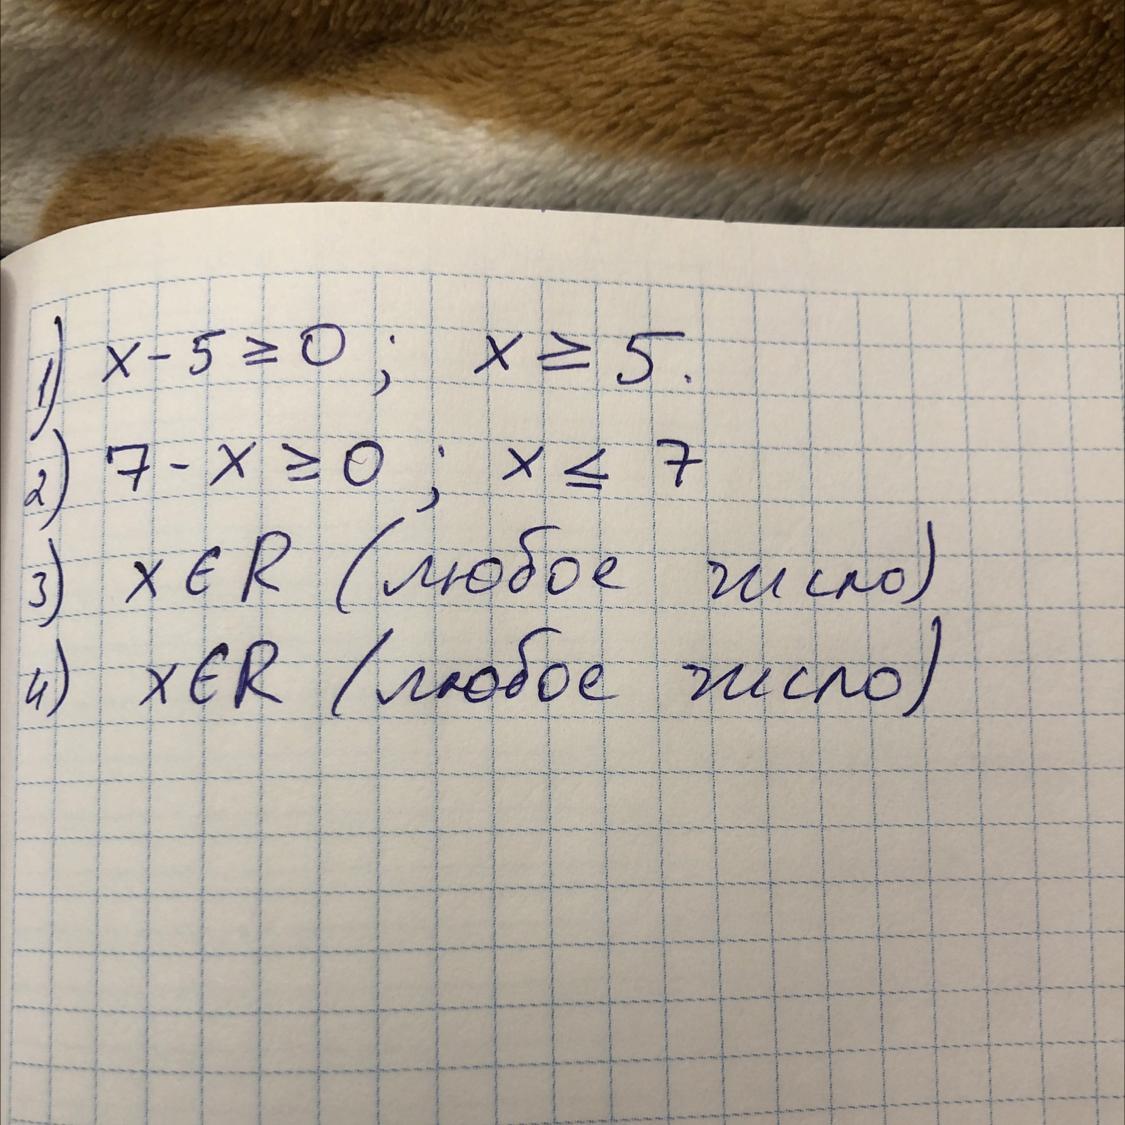 1) x - 5 ≥ 0 ; x ≥ 5.
2) 7 - x ≥ 0 ; x ≤ 7
3) x ∈ R (любое число)
4) x ∈ R (любое число)